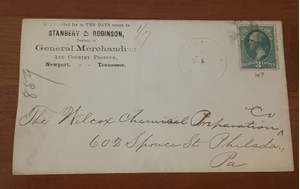 called for in TEN DAYS return to
STANBERY & ROBINSON,
General Merchandise
AND COUNTRY PRODUCE,
Newport, - - Tennessee.
1/7
859
The Wilcox Chemical Preparation Co
602 Spruce St Philada,
Pa